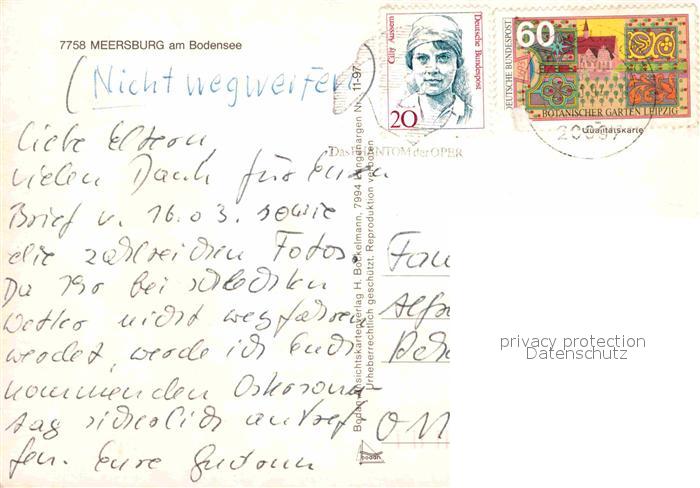 7758 MEERSBURG am Bodensee
(Nicht wegwerfen)
Liebe Eltern,
vielen Dank für Euren
Brief v. 16.03. sowie
die zahlreichen Fotos.
Da Ihr bei schlechten
Wetter nicht wegfahren
werdet, werde ich Euch
kommenden Ostersonn-
tag sicherlich antref-
fen. Eure Gudrun
Bodan-Ansichtskartenverlag H. Bockelmann, 7994 Langenargen Nr. 11-97
Urheberrechtlich geschützt. Reproduktion verboten
bodan
Cilly Aussem
Deutsche Bundespost
20
DEUTSCHE BUNDESPOST
60
BOTANISCHER GARTEN LEIPZIG
Qualitätskarte
Das PHANTOM der OPER
Fam
Alfr
privacy protection
Datenschutz